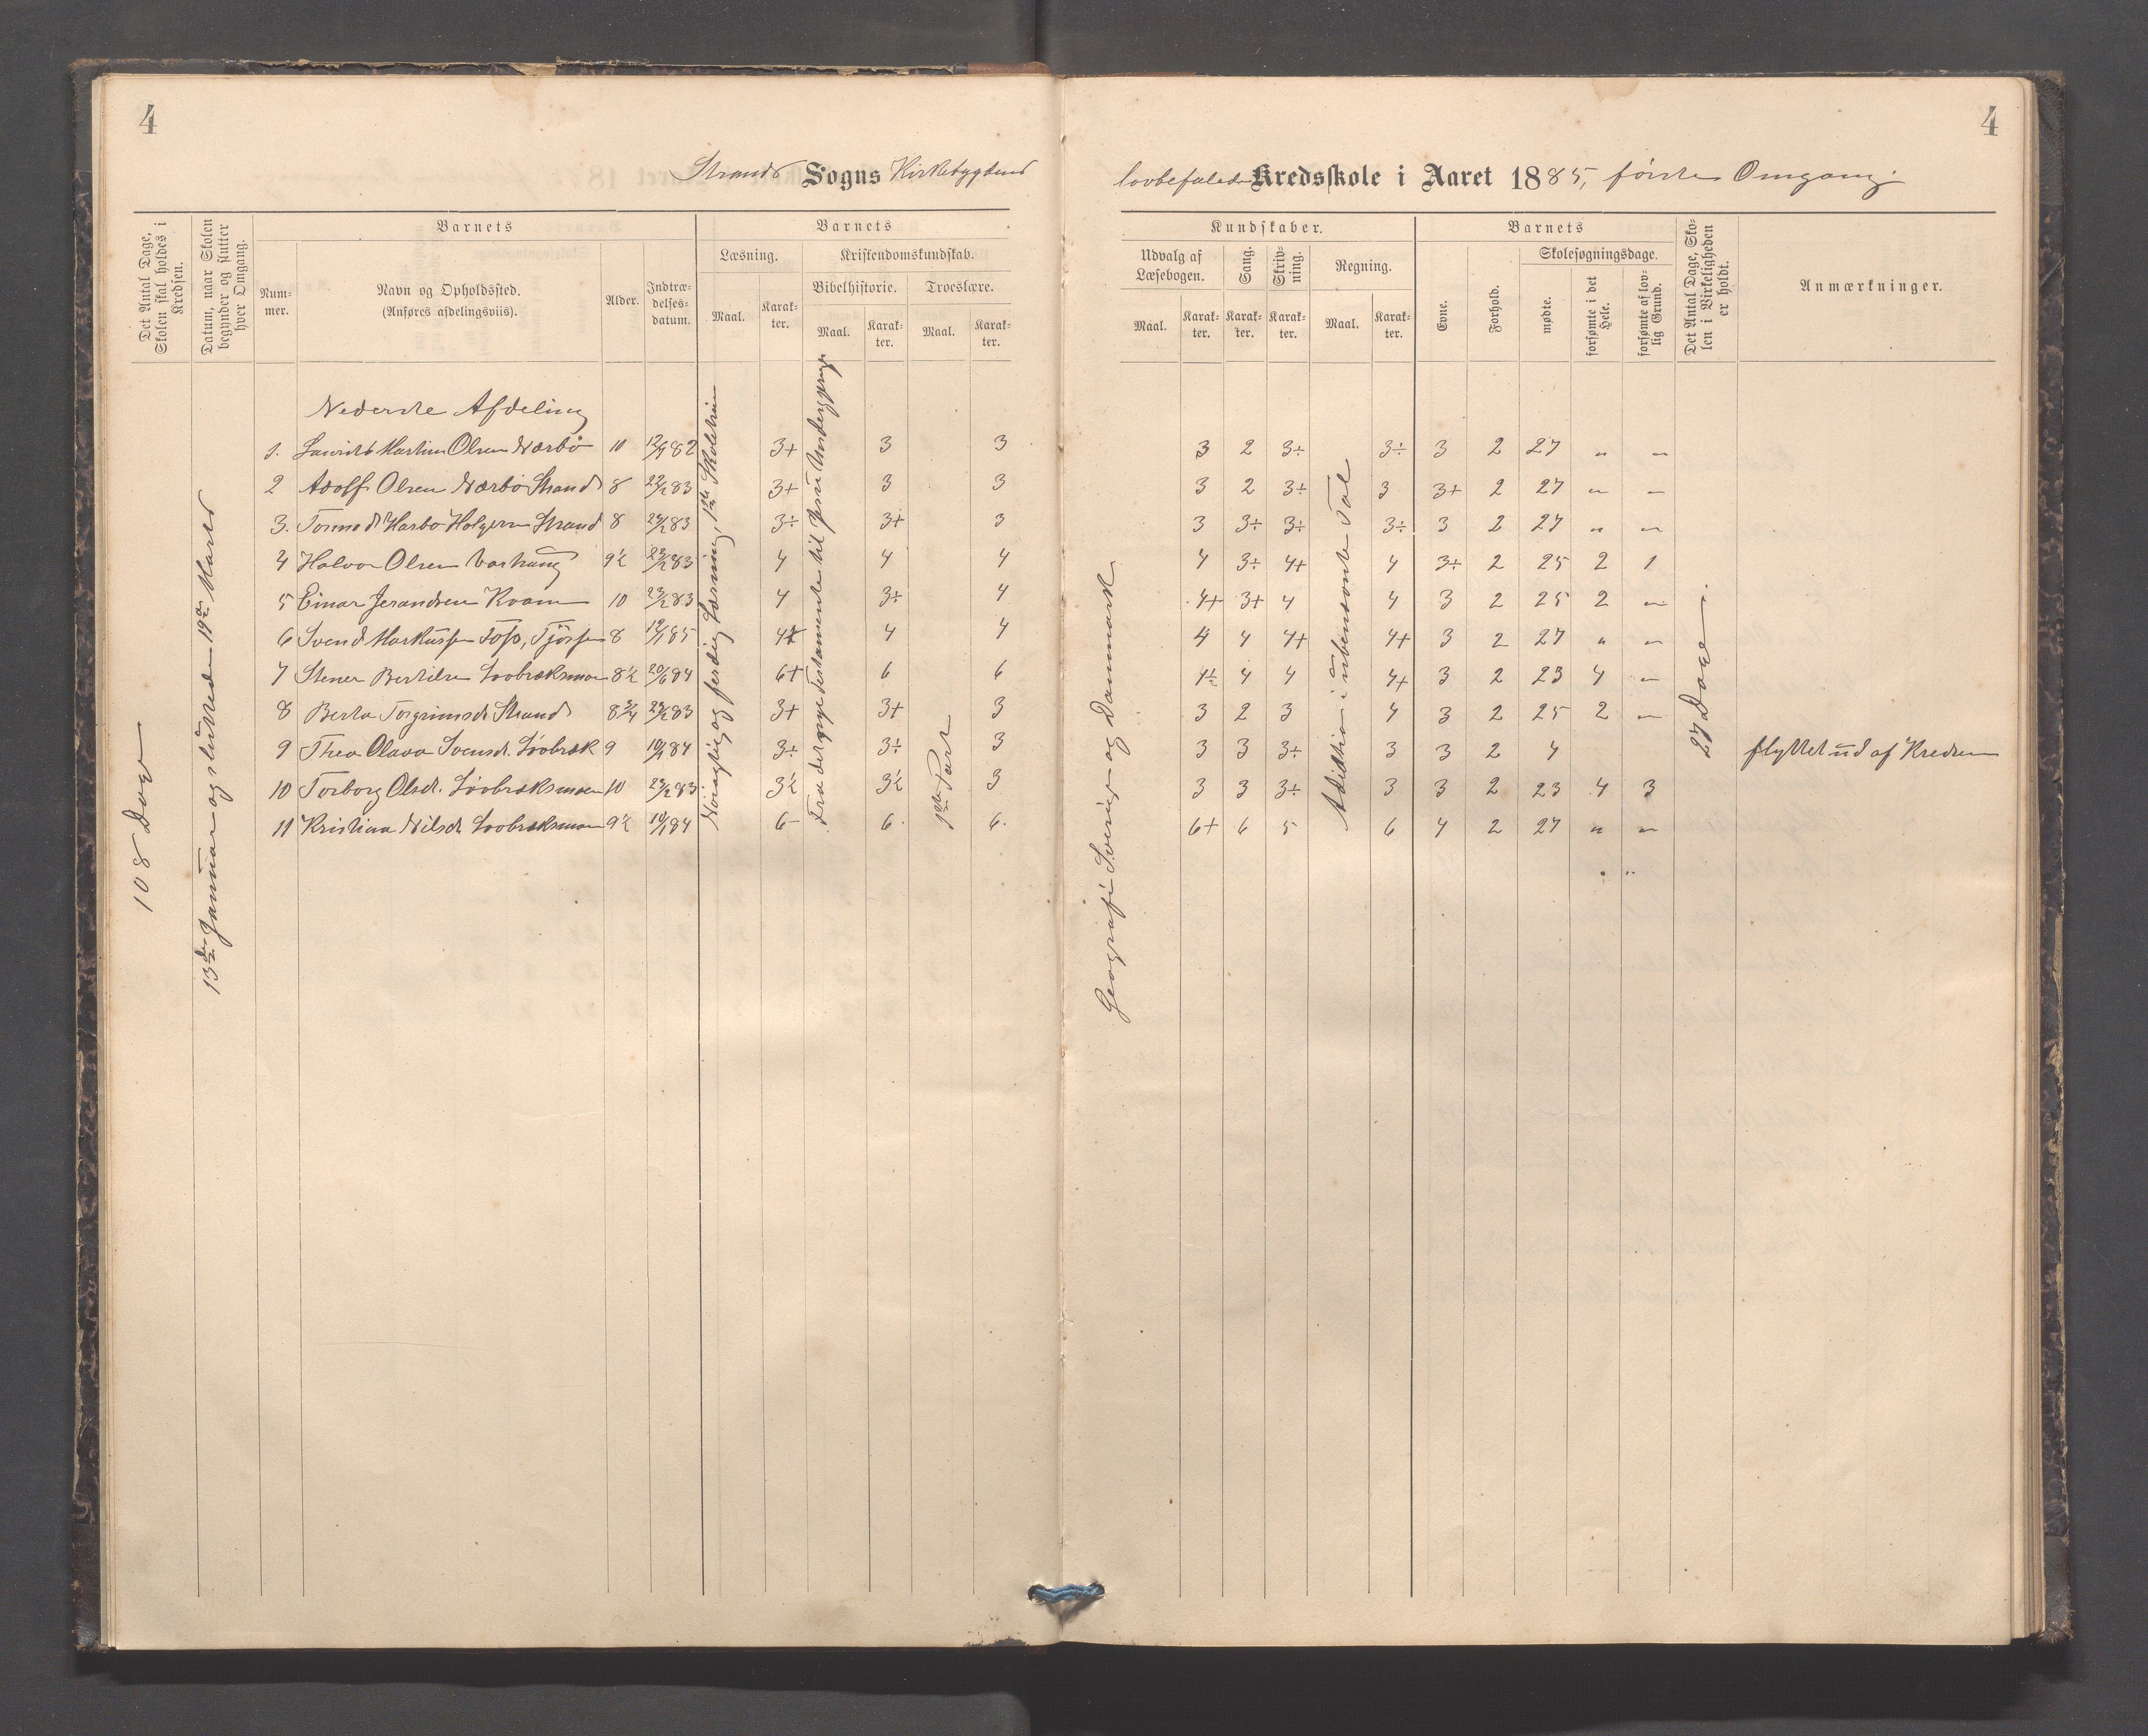 4
4
Strands Sogns Kirkebygdens
lovbefalede Kredsskole i Aaret 1885, første Omgang.
Det Antal Dage, Skolen skal holdes i Kredsen.
Datum, naar Skolen begynder og slutter hver Omgang.
Barnets
Num-mer.
Navn og Opholdssted.
(Anføres afdelingsviis).
Alder.
Indtræ-delses-datum.
Barnets
Læsning.
Maal.
Karak-ter.
Kristendomskundskab.
Bibelhistorie.
Maal.
Karak-ter.
Troeslære.
Maal.
Karak-ter.
Kundskaber.
Udvalg af Læsebogen.
Maal.
Karak-ter.
Sang.
Karak-ter.
Skriv-ning.
Karak-ter.
Regning.
Maal.
Karak-ter.
Barnets
Evne.
Forhold.
Skolesøgningsdage.
mødte.
forsømte i det Hele.
forsømte af lov-lig Grund.
Det Antal Dage, Sko-len i Virkeligheden er holdt.
Anmærkninger.
108 Dage
13de Januar og sluttede 19de Marts
Nøiagtig og færdig Læsning, 1ste Skoletrin
Fra det nye Testamente til Jesu Undergjerninger
1ste Part
Geografi Sverige og Danmark
Addition i ubenævnte Tal
27 Dage
Nederste Afdeling
1. Laurits Martin Olsen Nærbø 10 12/9 82 3+ 3 3 3 2 3÷ 3÷ 3 2 27 " "
2 Adolf Olsen Nærbø Strand 8 23/2 83 3+ 3 3 3 2 3÷ 3 3+ 2 27 " "
3. Tormod Harbo Holgersen Strand 8 23/2 83 3÷ 3+ 3 3 3÷ 3÷ 3÷ 3 2 27 " "
4 Halvor Olsen Varhaug 9½ 23/2 83 4 4 4 4 3÷ 4+ 4 3÷ 2 25 2 1
5 Einar Jerandsen Kvam 10 23/2 83 4 3÷ 4 4+ 3+ 4 4 3 2 25 2 "
6 Svend Markussen Foss, Tjøssem 8 12/1 85 4+ 4 4 4 4 4+ 4+ 3 2 27 " "
7 Stener Bertilsen Løvbræksmoen 8½ 20/6 84 6+ 6 6 4÷ 4 4 4+ 3 2 23 4 "
8 Berta Torgrimsdt. Strand 8¾ 23/2 83 3+ 3+ 3 3 2 3 4 3 2 25 2 "
9 Thea Olava Svensdt. Løvbræk 9 10/1 84 3÷ 3÷ 3 3 3 3÷ 3 3 2 4 flyttet ud af Kredsen
10 Torborg Olsdt. Løvbræksmoen 10 23/2 83 3½ 3½ 3 3 3 3÷ 3 3 2 23 4 3
11 Kristina Nilsdt. Løvbræksmoen 9½ 10/1 84 6- 6. 6. 6+ 6 5 6 4 2 27 " "